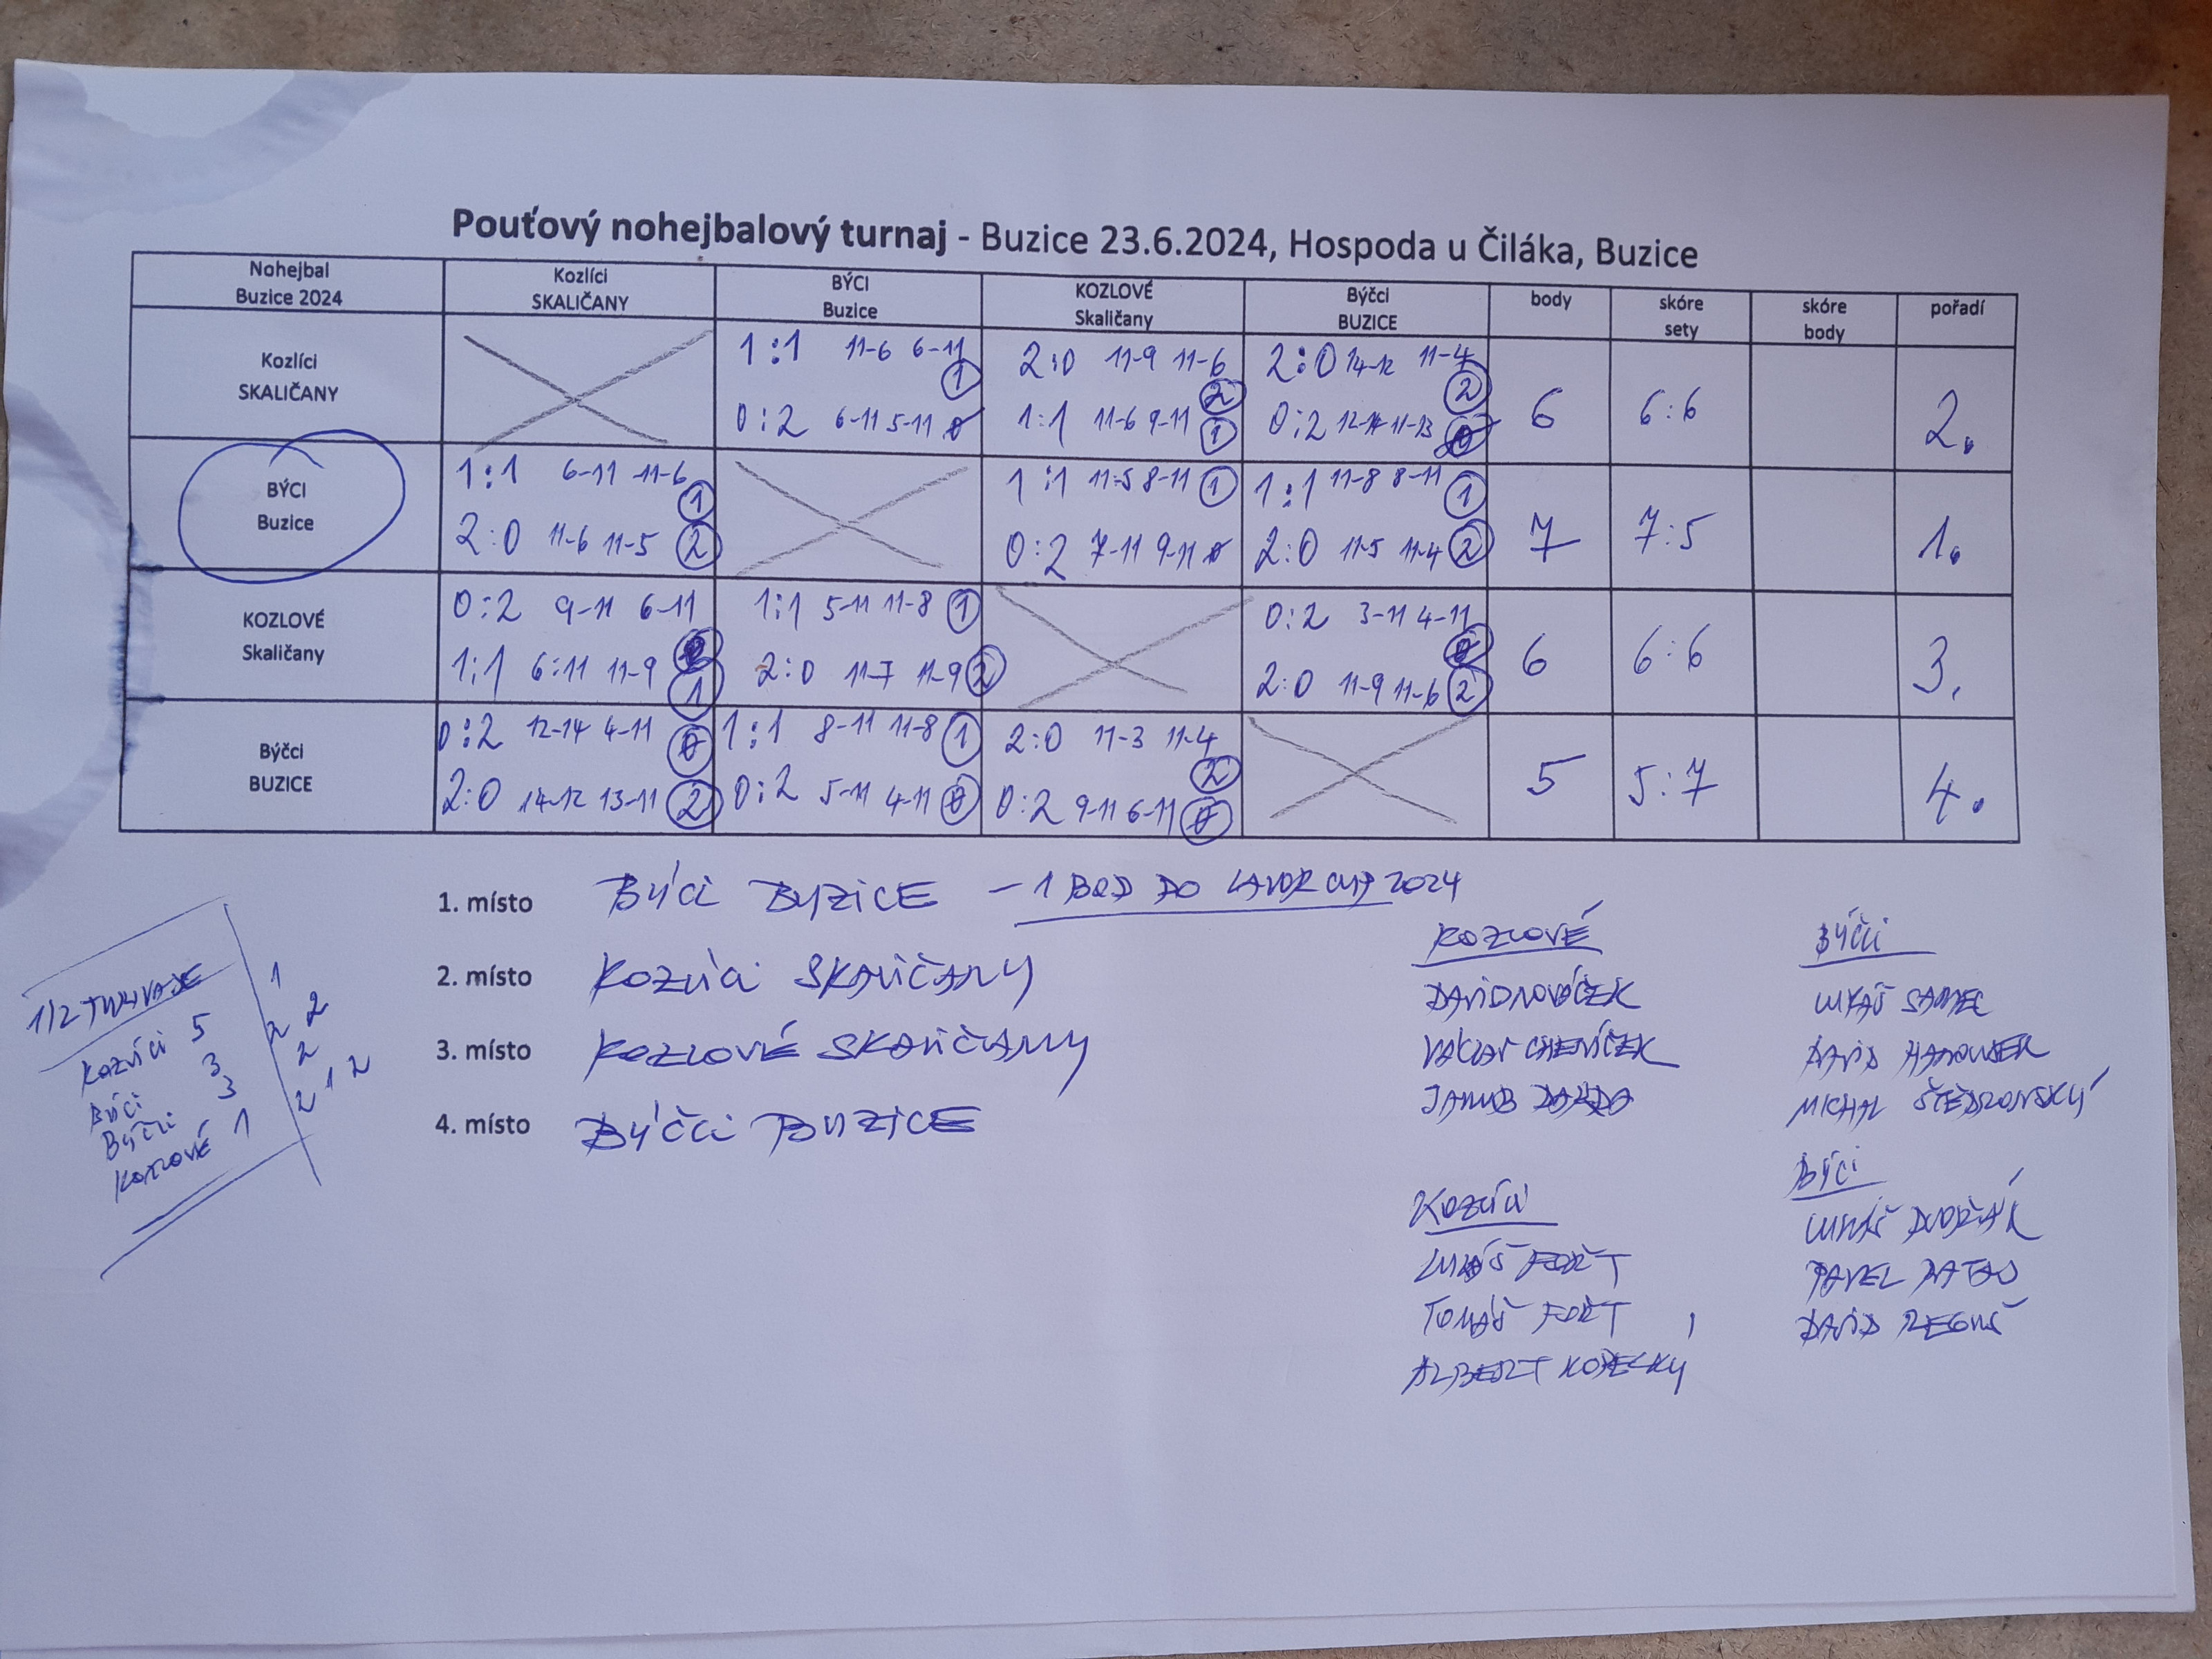 Pouťový nohejbalový turnaj - Buzice 23.6.2024, Hospoda u Čiláka, Buzice
Nohejbal Buzice 2024 Kozlíci SKALIČANY BÝCI Buzice KOZLOVÉ Skaličany Býčci BUZICE body skóre sety skóre body pořadí
Kozlíci SKALIČANY
1:1 11-6 6-11 1
0:2 6-11 5-11 0
2:0 11-9 11-6 2
1:1 11-6 9-11 1
2:0 14-12 11-4 2
0:2 12-14 11-13 0
6 6:6 2.
BÝCI Buzice
1:1 6-11 11-6 1
2:0 11-6 11-5 2
1:1 11-5 8-11 1
0:2 7-11 9-11 0
1:1 11-8 8-11 1
2:0 11-5 11-4 2
7 7:5 1.
KOZLOVÉ Skaličany
0:2 9-11 6-11 0
1:1 6:11 11-9 1
1:1 5-11 11-8 1
2:0 11-7 11-9 2
0:2 3-11 4-11 0
2:0 11-9 11-6 2
6 6:6 3.
Býčci BUZICE
0:2 12-14 4-11 0
2:0 14-12 13-11 2
1:1 8-11 11-8 1
0:2 5-11 4-11 0
2:0 11-3 11-4 2
0:2 9-11 6-11 0
5 5:7 4.
1. místo BÝCI BUZICE - 1 BOD DO LAVOR CUP 2024
2. místo KOZLÍCI SKALIČANY
3. místo KOZLOVÉ SKALIČANY
4. místo BÝČCI BUZICE
1/2 TURNAJE
KOZLÍCI 5 1
BÝCI 3 2 2
BÝČCI 3 2
KOZLOVÉ 1 2 1 2
KOZLOVÉ
DAVID NOVÁČEK
VÁCLAV CHENÍČEK
JAKUB
BÝČCI
LUKÁŠ SAMEC
DAVID
MICHAL ŠTĚDRONSKÝ
KOZLÍCI
LUKÁŠ FOŘT
TOMÁŠ FOŘT
ALBERT KOPECKÝ
BÝCI
LUKÁŠ DVOŘÁK
PAVEL
DAVID